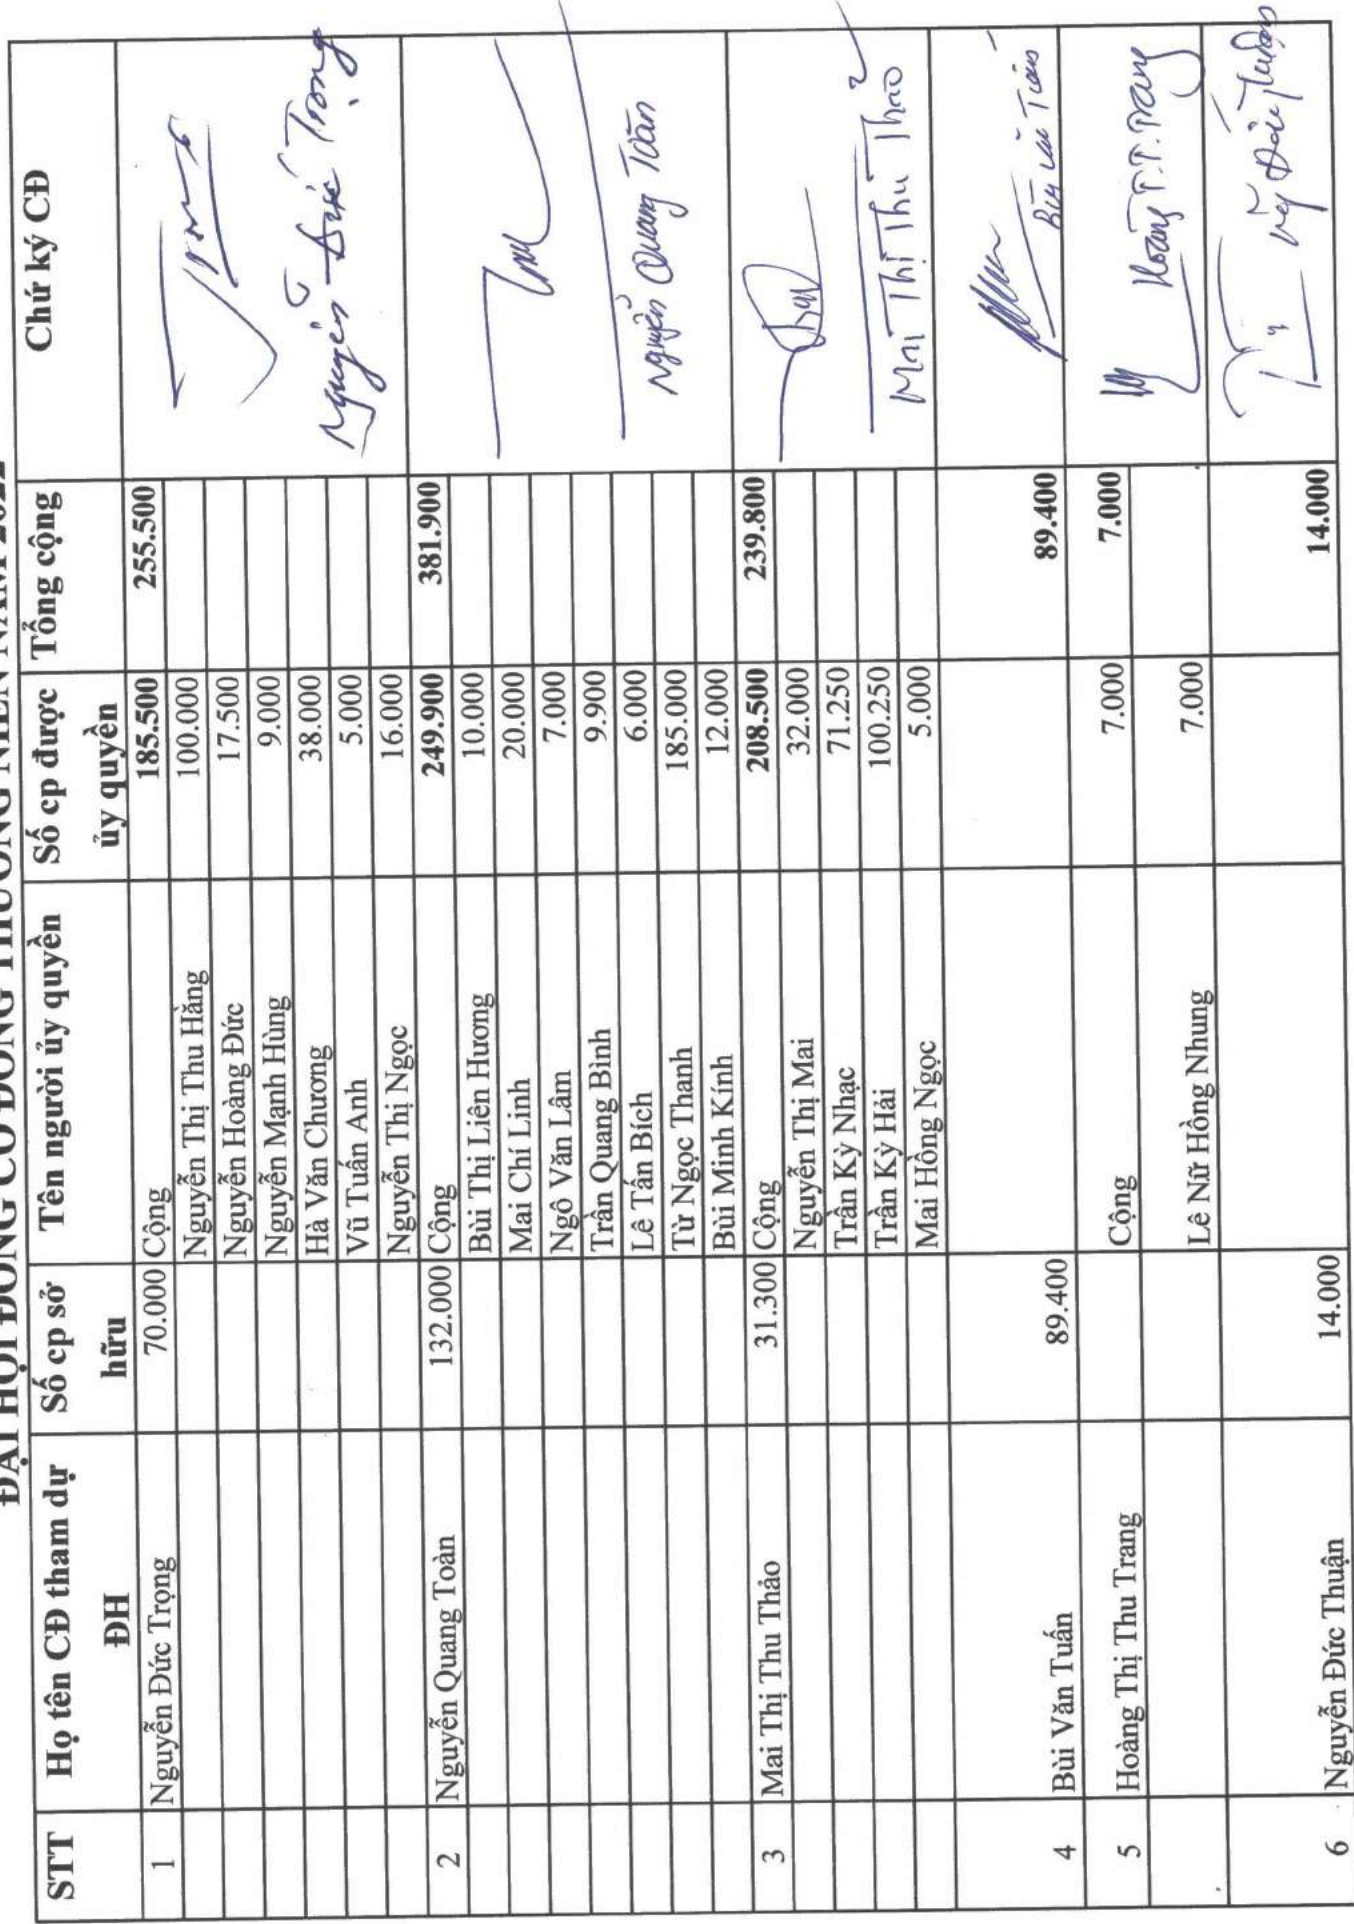 ĐẠI HỘI ĐỒNG CỔ ĐÔNG THƯỜNG NIÊN NĂM 2022
STT Họ tên CĐ tham dự ĐH Số cp sở hữu Tên người ủy quyền Số cp được ủy quyền Tổng cộng Chứ ký CĐ
1 Nguyễn Đức Trọng 70.000 Cộng 185.500 255.500
Nguyễn Thị Thu Hằng 100.000
Nguyễn Hoàng Đức 17.500
Nguyễn Mạnh Hùng 9.000
Hà Văn Chương 38.000
Vũ Tuấn Anh 5.000
Nguyễn Thị Ngọc 16.000
Nguyễn Đức Trọng
2 Nguyễn Quang Toàn 132.000 Cộng 249.900 381.900
Bùi Thị Liên Hương 10.000
Mai Chí Linh 20.000
Ngô Văn Lâm 7.000
Trần Quang Bình 9.900
Lê Tấn Bích 6.000
Từ Ngọc Thanh 185.000
Bùi Minh Kính 12.000
Nguyễn Quang Toàn
3 Mai Thị Thu Thảo 31.300 Cộng 208.500 239.800
Nguyễn Thị Mai 32.000
Trần Kỳ Nhạc 71.250
Trần Kỳ Hải 100.250
Mai Hồng Ngọc 5.000
Mai Thị Thu Thảo
4 Bùi Văn Tuấn 89.400 89.400
5 Hoàng Thị Thu Trang Cộng 7.000 7.000 Hoàng T.T.Trang
Lê Nữ Hồng Nhung 7.000
6 Nguyễn Đức Thuận 14.000 14.000